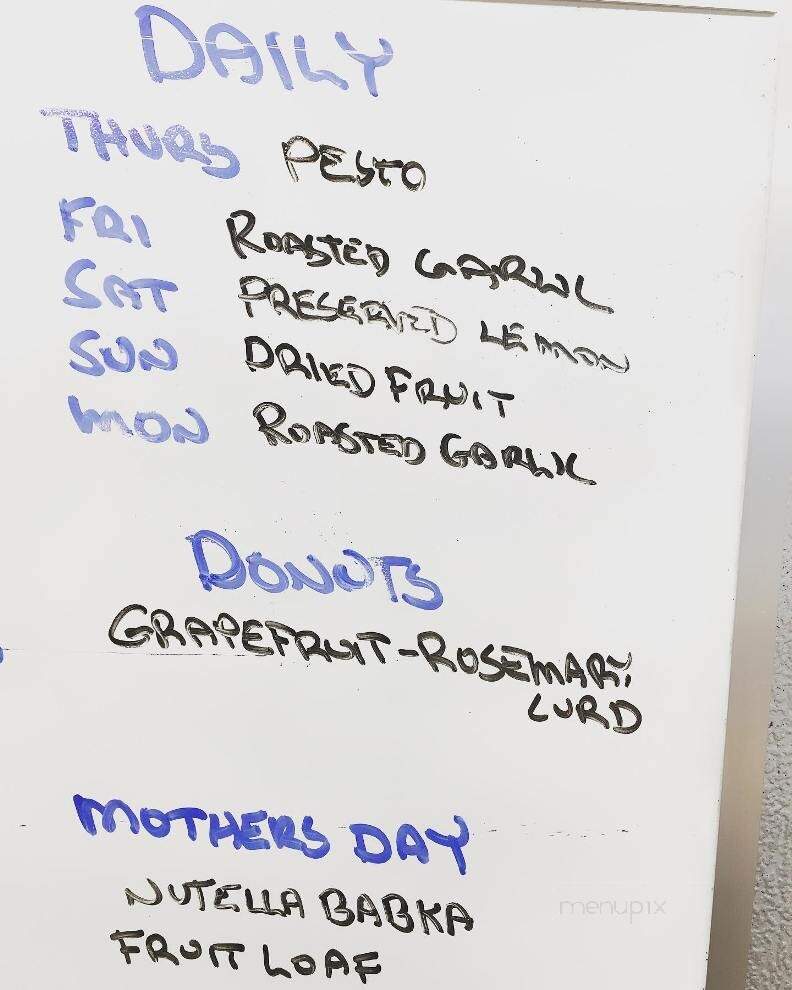 DAILY
THURS PESTO
FRI ROASTED GARLIC
SAT PRESERVED LEMON
SUN DRIED FRUIT
MON ROASTED GARLIC
DONUTS
GRAPEFRUIT-ROSEMARY
CURD
MOTHERS DAY
NUTELLA BABKA
menupix
FRUIT LOAF